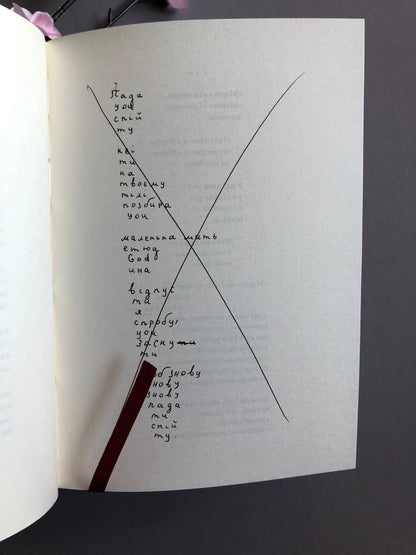 Пада
you
спій
ту
кві
ти
на
твоєму
тілі
позбира
you
маленька мить
етюд
God
ина
відпус
ти
я
спробу
you
заску
ти
об знову
знову
знову
пада
ти
спій
ту.